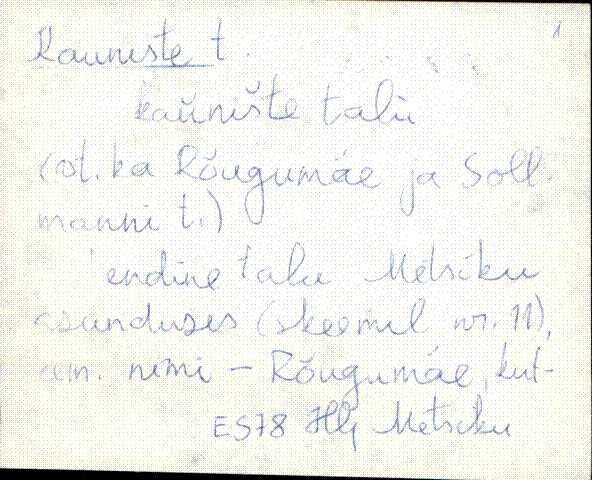 Kauniste t. 1
kaùnište talù
(vt. ka Rõugumäe ja Soll-
manni t.)
endine talu Metsiku
asunduses (skeemil nr. 11),
am. nimi – Rõugumäe, kut-
ES78 Hlj Metsiku